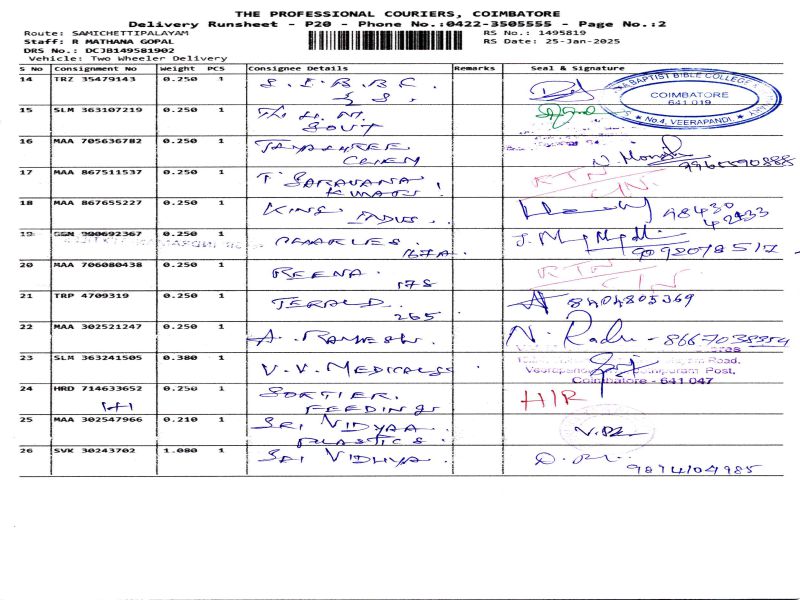 THE PROFESSIONAL COURIERS, COIMBATORE
Delivery Runsheet - P20 - Phone No.:0422-3505555 - Page No.:2
Route: SAMICHETTIPALAYAM RS No.: 1495819
Staff: R MATHANA GOPAL RS Date: 25-Jan-2025
DRS No.: DCJB149581902
Vehicle: Two Wheeler Delivery
S No Consignment No Weight PCS Consignee Details Remarks Seal & Signature
14 TRZ 35479143 0.250 1 S.I.B.B.C.
BAPTIST BIBLE COLLEGE
COIMBATORE
641 019
No.4, VEERAPANDI.
15 SLM 363107219 0.250 1 H.M.
GOVT
16 MAA 705636782 0.250 1 JAYASHREE
CHEM
17 MAA 867511537 0.250 1 T. SARAVANA
KUMAR RTN
18 MAA 867655227 0.250 1 KING INDUS. 98430
42933
19 0.250 1 CHARLES.
167A.
20 MAA 706080438 0.250 1 REENA. RTN
178
21 TRP 4709319 0.250 1 JERALD. 8404805369
265
22 MAA 302521247 0.250 1 A. RAMESH. N. Radu - 8667038954
23 SLM 363241505 0.380 1 V.V. MEDICALS
Road,
Post,
Coimbatore - 641 047
24 HRD 714633652 0.250 1 SORTIER. H/R
HI FEEDINGS
25 MAA 302547966 0.210 1 SRI VIDYAA
PLASTICS.
26 SVK 30243702 1.080 1 SRI VIDHYA.
9874104985